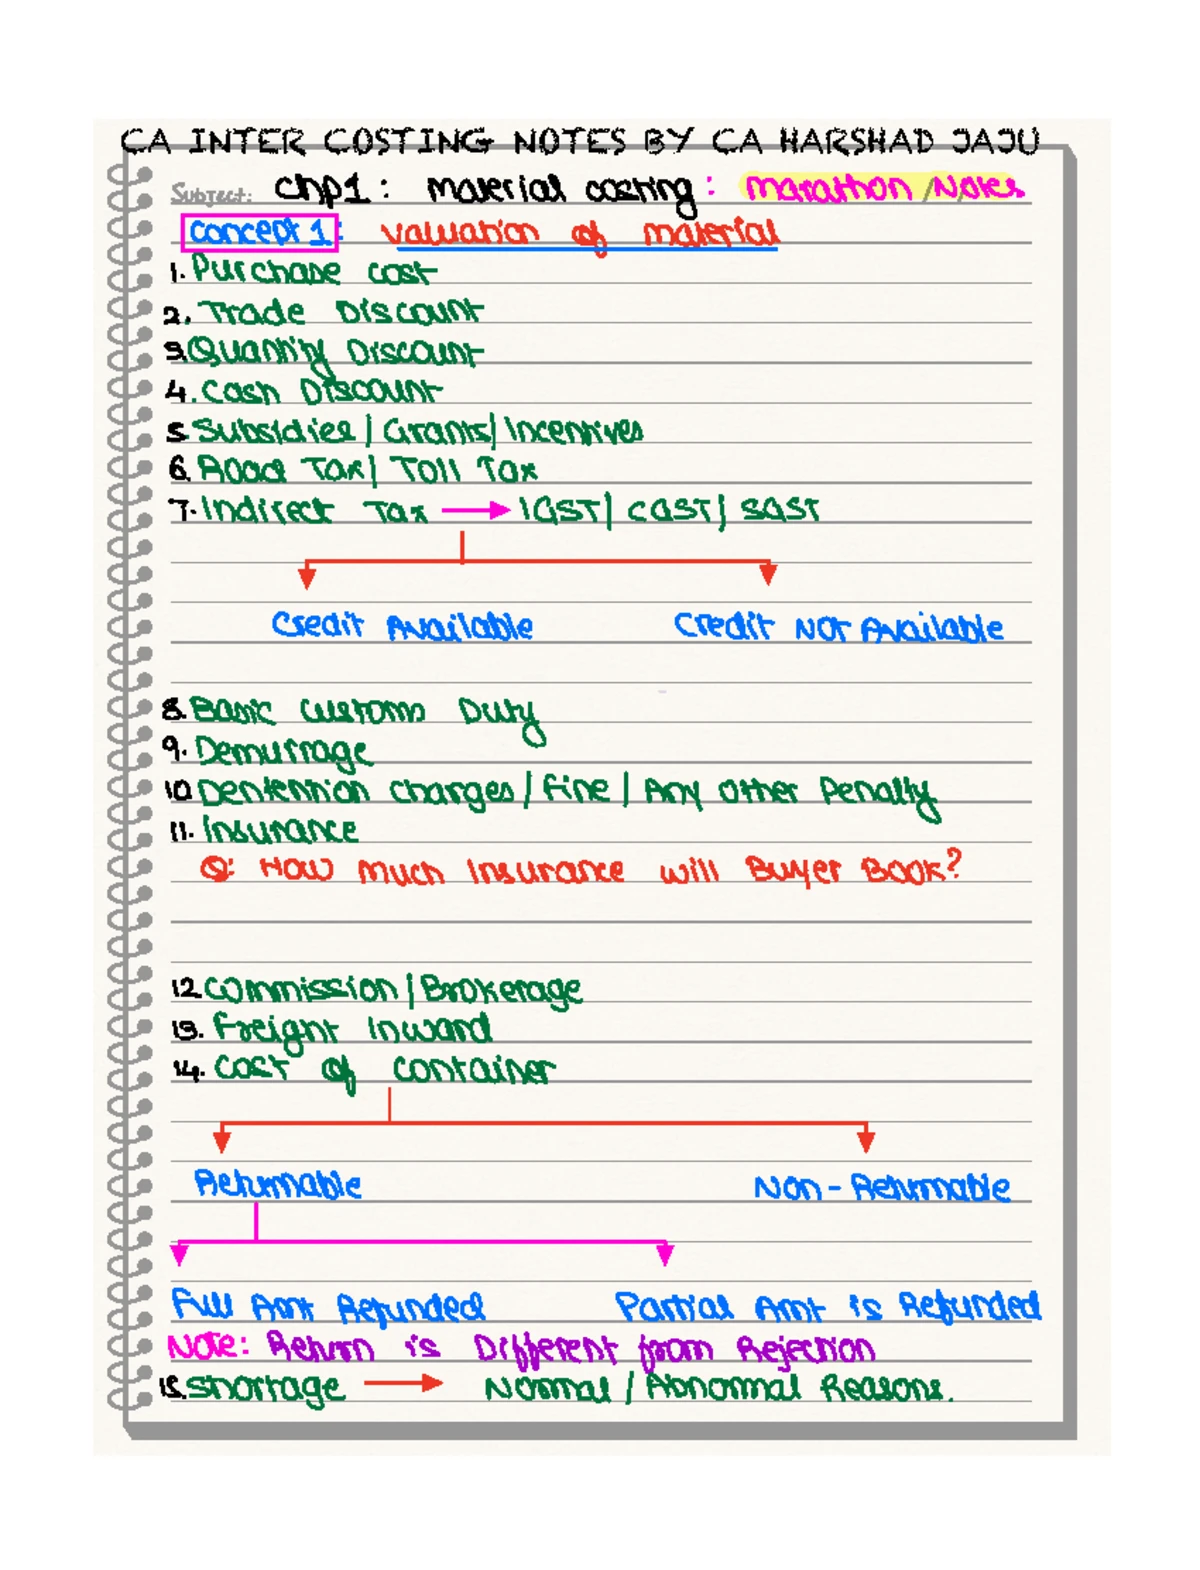 CA INTER COSTING NOTES BY CA HARSHAD JAJU
Subject: Chp1: Material costing: Marathon Notes
Concept 1: Valuation of Material
1. Purchase cost
2. Trade Discount
3. Quantity Discount
4. Cash Discount
5. Subsidies | Grants | Incentives
6. Road Tax | Toll Tax
7. Indirect Tax → IGST | CGST | SGST
Credit Available Credit Not Available
8. Basic Customs Duty
9. Demurrage
10. Dentention charges / Fine | Any Other Penalty
11. Insurance
Q: How Much Insurance will Buyer Book?
12. Commission | Brokerage
13. Freight Inward
14. Cost of container
Returnable Non-Returnable
Full Amt Refunded Partial Amt is Refunded
Note: Return is Different from Rejection
15. Shortage → Normal / Abnormal Reasons.